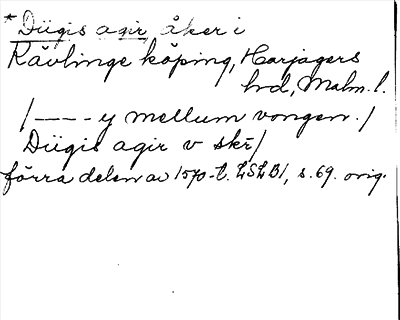 * Dügis agir åker i
Kävlinge köping, Harjagers
hd, Malm. l.
/---- y mellum vongen./
Dügis agir v skr/
förra delen av 1570-t. LSLB1, s. 69. orig.